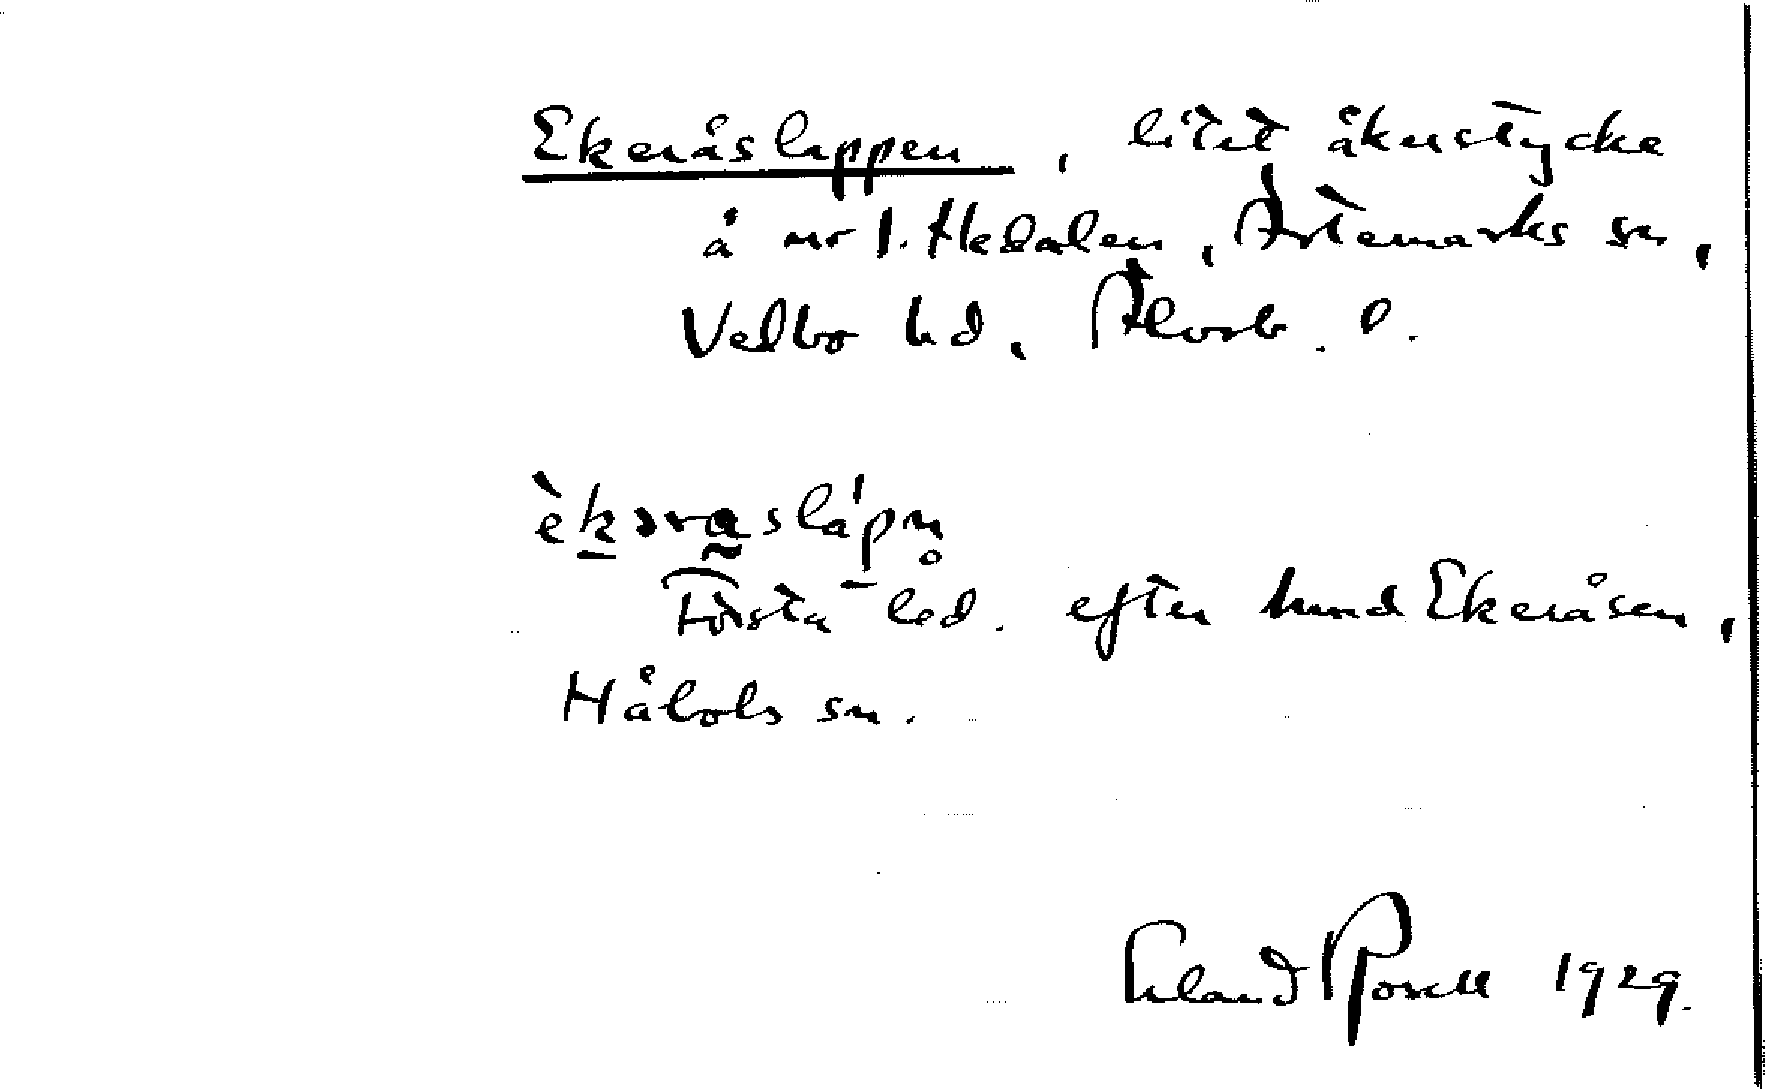 Ekeråslappen, litet åkerstycke
å nr 1. Hedalen, Ärtemarks sn,
Vedbo hd, Älvsb. l.
èkəraslápn̥
Första led. efter hmd Ekeråsen,
Håbols sn.
Erland Rosell 1929.